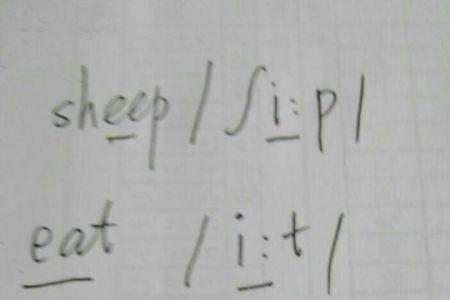 sheep /ʃi:p/
eat /i:t/